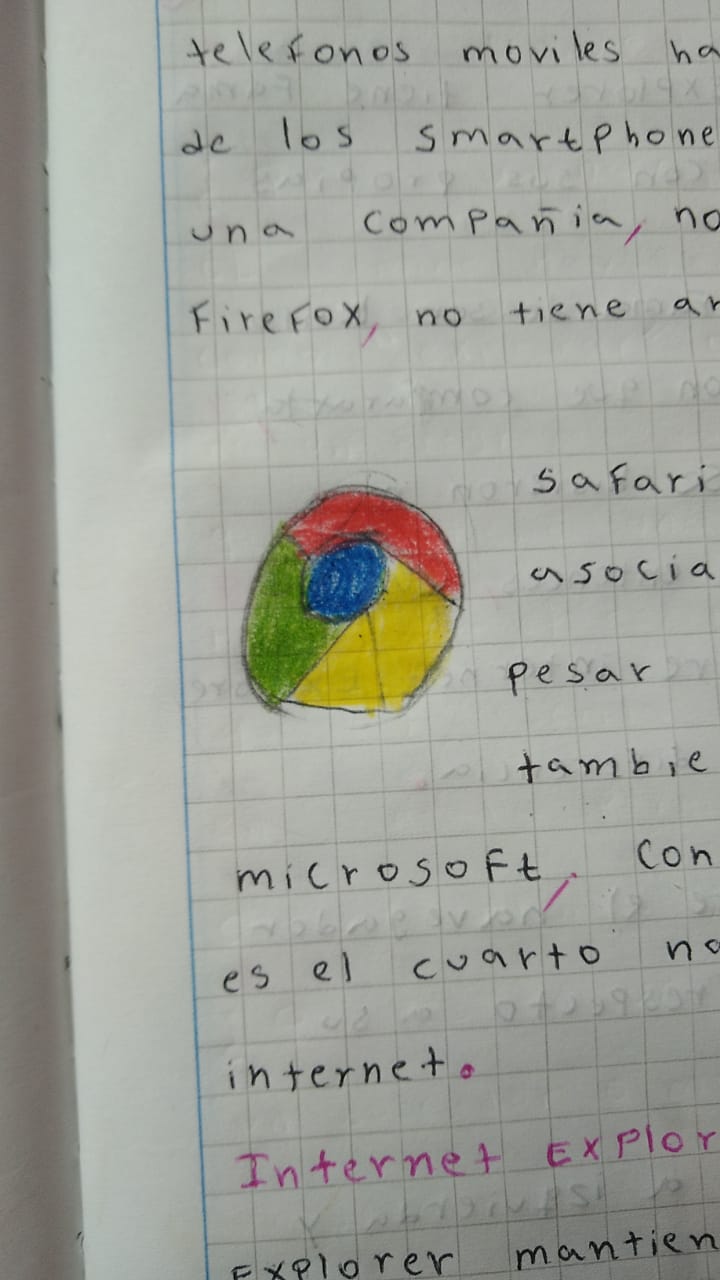 telefonos moviles ha
de los smartphone
una compañia, no
FireFox, no tiene ar
safari
asocia
pesar
tambie
microsoft, con
es el cuarto na
internet.
Internet Explor
Explorer mantien